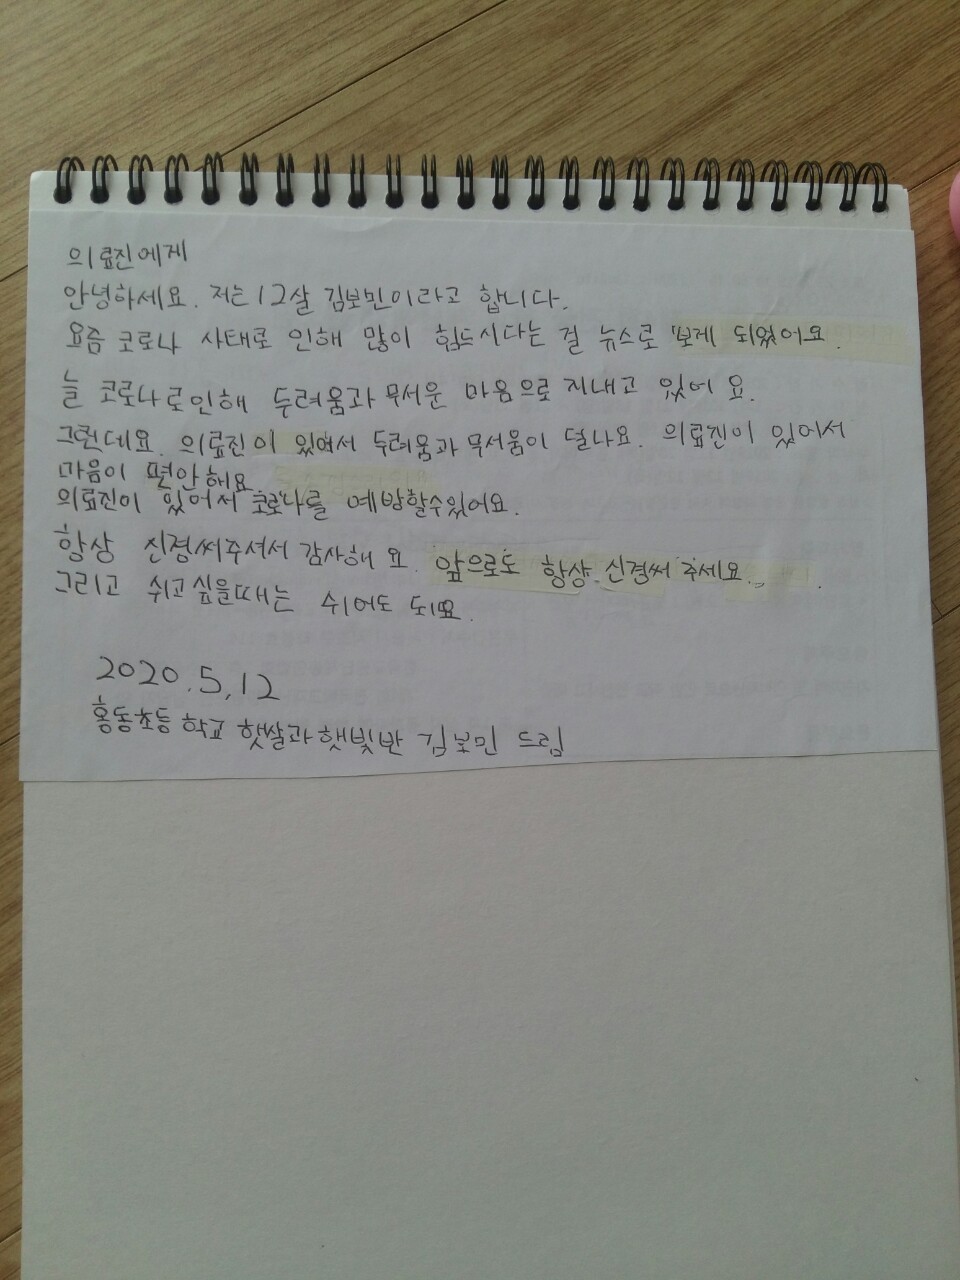 의료진에게
안녕하세요. 저는 12살 김보민이라고 합니다.
요즘 코로나 사태로 인해 많이 힘드시다는 걸 뉴스로 보게 되었어요.
늘 코로나로인해 두려움과 무서운 마음으로 지내고 있어요.
그런데요. 의료진이 있어서 두려움과 무서움이 덜나요. 의료진이 있어서
마음이 편안해요.
의료진이 있어서 코로나를 예방할수있어요.
항상 신경써주셔서 감사해요. 앞으로도 항상 신경써 주세요.
그리고 쉬고싶을때는 쉬어도 되요.
2020.5.12
홍동초등학교 햇살과햇빛반 김보민 드림